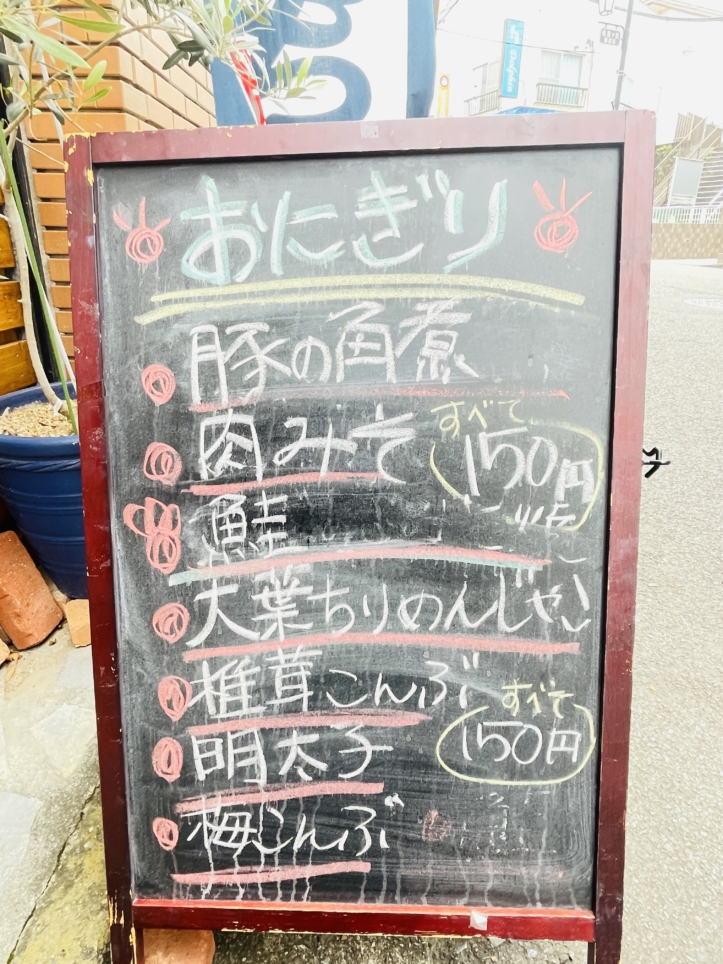 おにぎり
豚の角煮
肉みそ
すべて
150円
鮭
大葉ちりめんじゃこ
椎茸こんぶ
すべて
150円
明太子
梅こんぶ